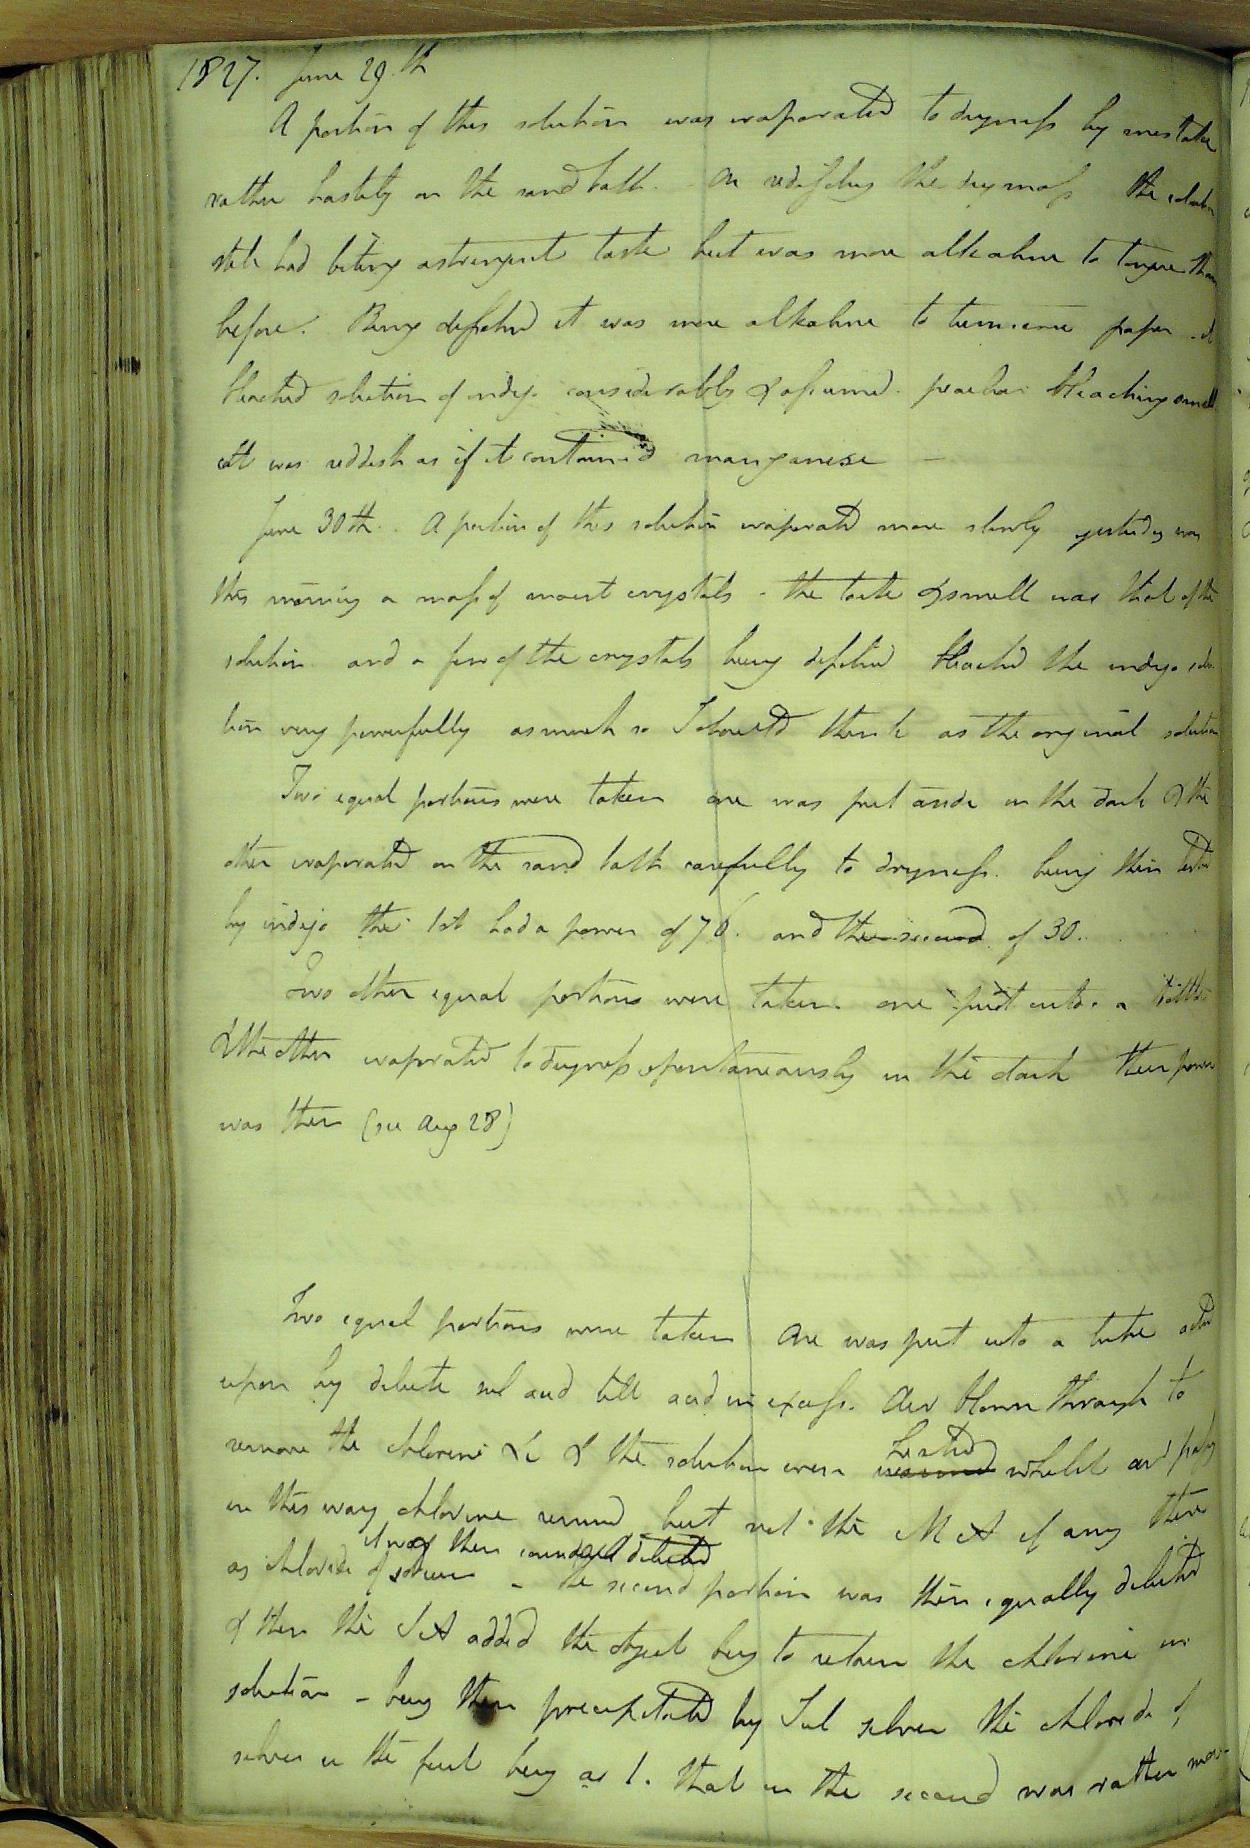 1827. June 29.th
A portion of this solution was evaporated to dryness by mistake
rather hastily on the sand bath. On redissolving the dry mass the solution
still had biting astringent taste but was more alkaline to tongue than
before. Being dissolved it was more alkaline to turmeric paper - it
bleached solution of indigo considerably & assumed peculiar bleaching smell
salt was reddish as if it contained manganese -
June 30th. A portion of this solution evaporated more slowly yesterday was
this morning a mass of moist crystals - the taste & smell was that of the
solution and a few of the crystals being dissolved bleached the indigo solu
tion very powerfully as much so I should think as the original solution
Two equal portions were taken one was put aside in the dark & the
other evaporated on the sand bath carefully to dryness. being then tested
by indigo the 1st had a power of 76. and the second of 30.
Two other equal portions were taken. one put into a bottle
& the other evaporated to dryness spontaneously in the dark their power
was then (see Aug 28)
Two equal portions were taken One was put into a tube acted
upon by dilute sul acid till acid in excess. Air blown through to
remove the chlorine &c & the solution even heated whilst air passing
in this way chlorine removed but not the M A if any there
it was then diluted
as chloride of sodium - the second portion was then equally diluted
& then the S A added the object being to retain the chlorine in
solution - being then precipitated by Sul silver the chloride of
silver in the first being as 1. that in the second was rather more